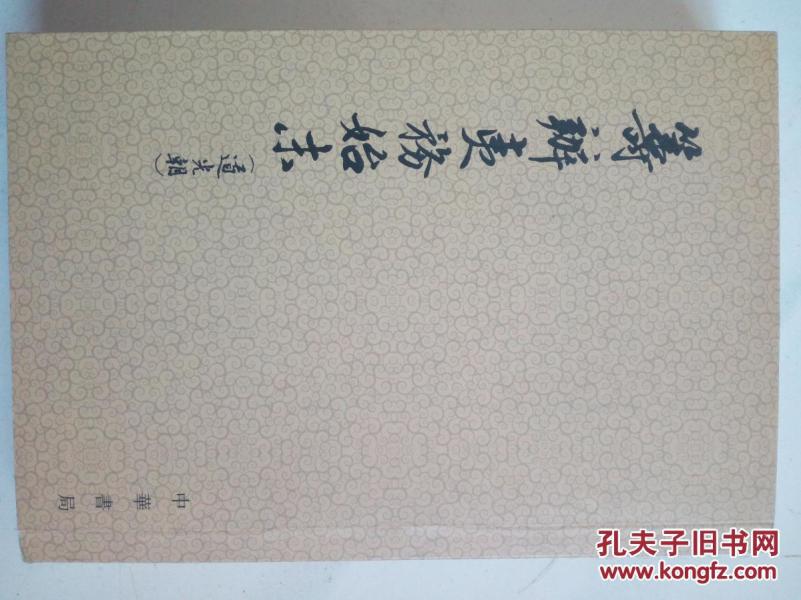 籌辦夷務始末
（道光朝）
中華書局
孔夫子旧书网
www.kongfz.com